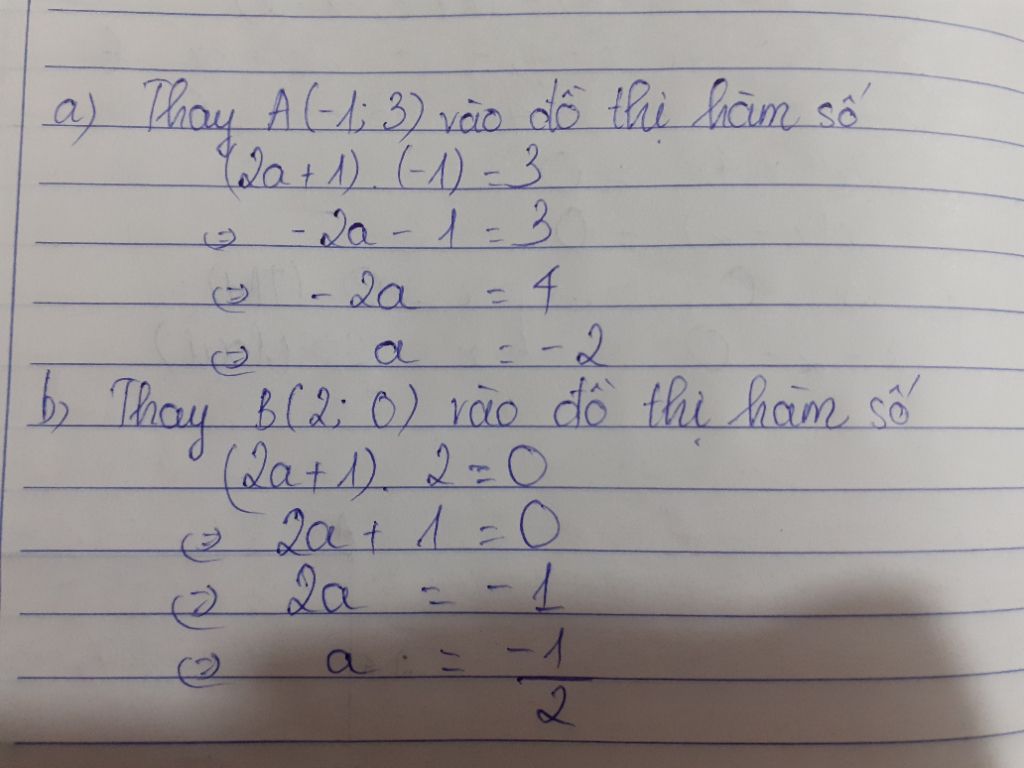 a) Thay A(-1; 3) vào đồ thị hàm số
(2a + 1) . (-1) = 3
⇔ - 2a - 1 = 3
⇔ - 2a = 4
⇔ a = - 2
b) Thay B(2; 0) vào đồ thị hàm số
(2a + 1) . 2 = 0
⇔ 2a + 1 = 0
⇔ 2a = - 1
⇔ a = -1/2